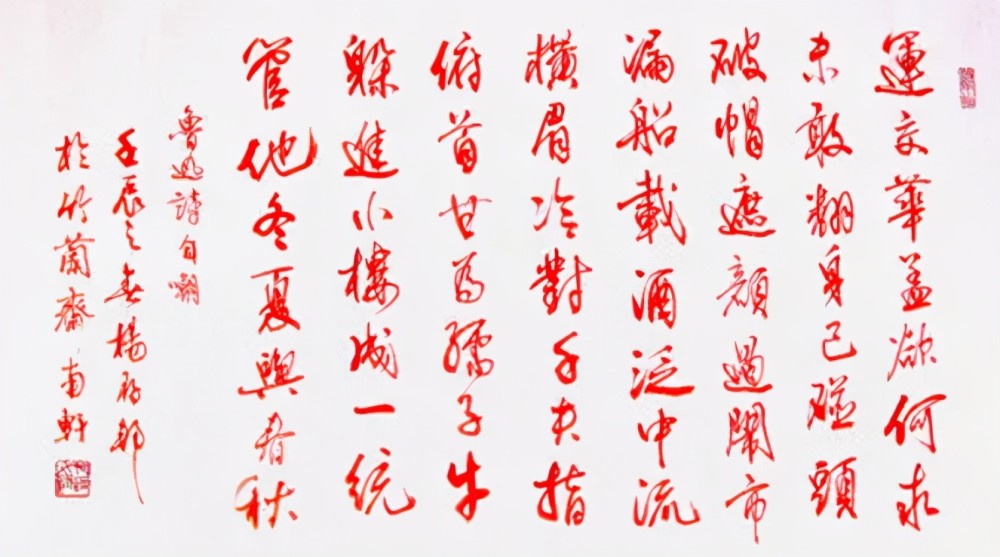 運交華盖欲何求
未敢翻身已碰頭
破帽遮顏過鬧市
漏船載酒泛中流
橫眉冷對千夫指
俯首甘為孺子牛
躲進小樓成一統
管他冬夏與春秋
魯迅詩自嘲
壬辰之春楊
於竹蘭齋南軒